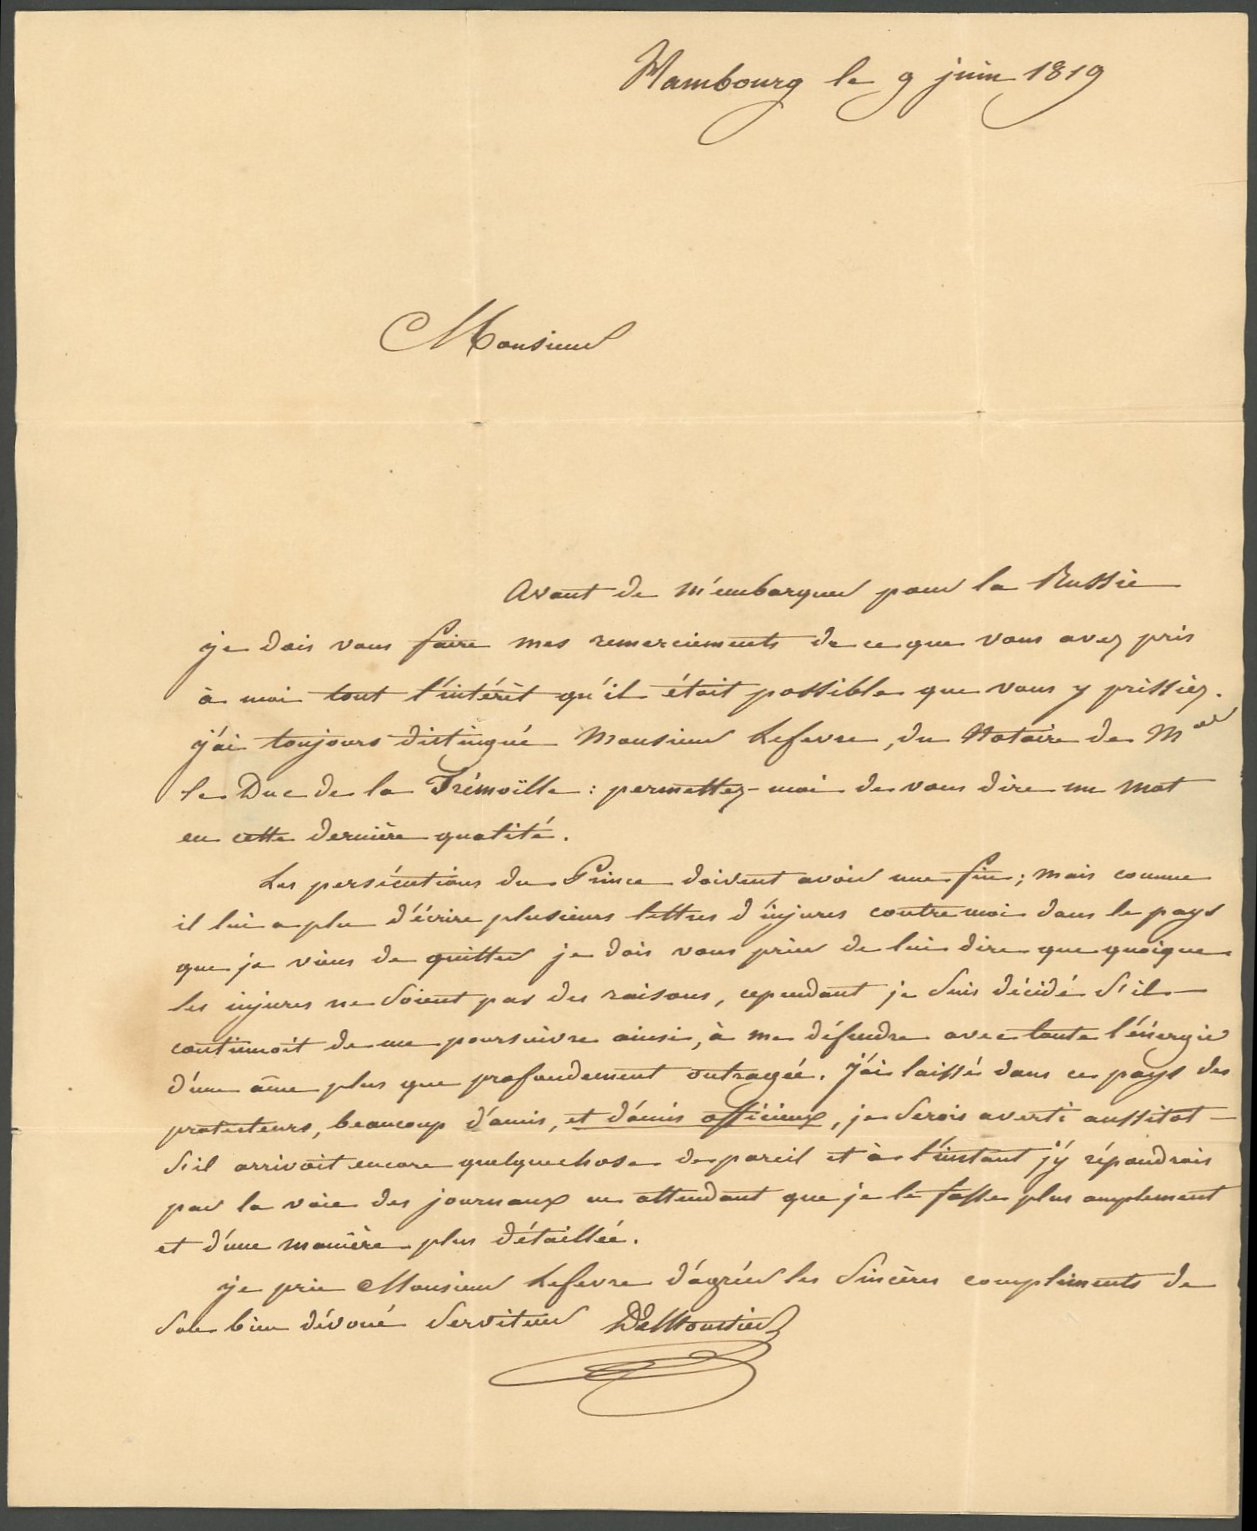 Hambourg le 9 juin 1819
Monsieur
Avant de m'embarquer pour la Russie
je dois vous faire mes remerciements de ce que vous avez pris
à moi tout l'intérêt qu'il était possible que vous y prissiez.
j'ai toujours distingué Monsieur Lefevre, du Notaire de M
le Duc de la Trémoïlle : permettez-moi de vous dire un mot
en cette dernière qualité.
Les persécutions du Prince doivent avoir une fin; mais comme
il lui a plu d'écrire plusieurs lettres d'injures contre moi dans le pays
que je viens de quitter je dois vous prier de lui dire que quoique
les injures ne soient pas des raisons, cependant je suis décidé s'il
continuoit de me poursuivre ainsi, à me défendre avec toute l'énergie
d'une âme plus que profondement outragée. j'ai laissé dans ce pays des
protecteurs, beaucoup d'amis, et d'amis officieux, je serois averti aussitot
s'il arrivoit encore quelque chose de pareil et à l'instant j'y répondrois
par la voie des journaux en attendant que je le fasse plus amplement
et d'une manière plus détaillée.
je prie Monsieur Lefevre d'agréer les sincères compliments de
son bien dévoué serviteur DeMoustier